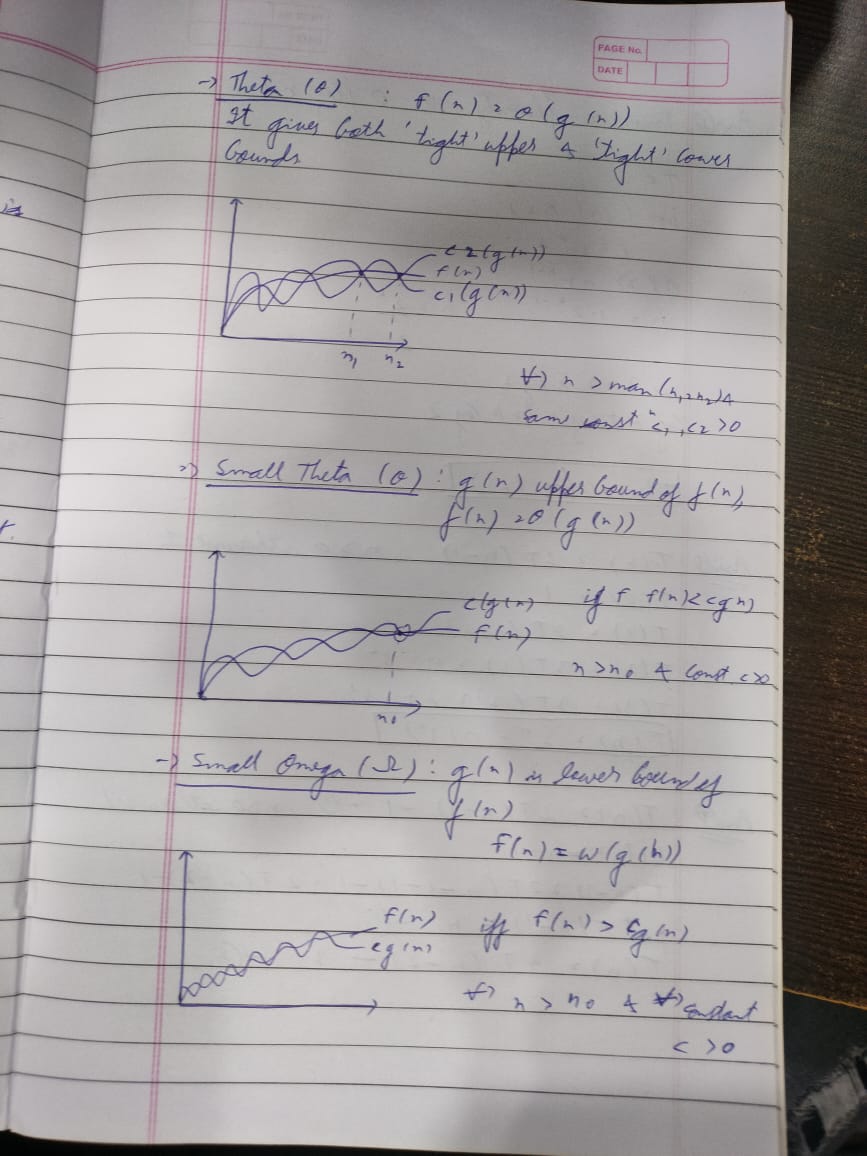 PAGE No.
DATE
→ Theta (θ) : f(n) = θ(g(n))
It gives both 'tight' upper & 'tight' lower
bounds
c2(g(n))
f(n)
c₁(g(n))
n₁ n₂
∀ n > max(n₁, n₂) &
some const c₁, c₂ >0
→ Small Theta (θ) : g(n) upper bound of f(n),
f(n) = θ(g(n))
c(g(n) iff f(n)<cg n)
f(n)
n>n₀ & const. c>0
n₀
→ Small Omega (Ω) : g(n) is lower bound of
f(n)
f(n) = w(g(n))
f(n) iff f(n) > cg(n)
cg(n)
∀ n > n₀ & ∀ constant
c >0